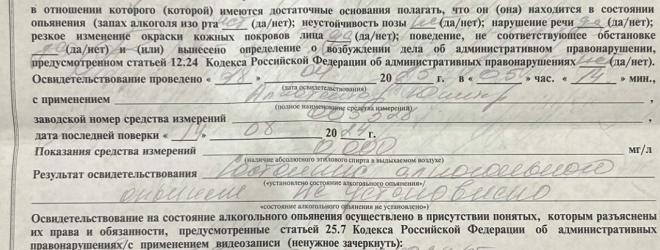 в отношении которого (которой) имеются достаточные основания полагать, что он (она) находится в состоянии
опьянения (запах алкоголя изо рта нет (да/нет); неустойчивость позы нет (да/нет); нарушение речи да (да/нет);
резкое изменение окраски кожных покровов лица да (да/нет); поведение, не соответствующее обстановке
да (да/нет) и (или) вынесено определение о возбуждении дела об административном правонарушении,
предусмотренном статьей 12.24 Кодекса Российской Федерации об административных правонарушениях нет (да/нет).
Освидетельствование проведено « 28 » 04 2025 г. в « 05 » час. « 14 » мин.,
(дата освидетельствования)
с применением Алкотектор Юпитер ,
(полное наименование средства измерений)
заводской номер средства измерений 005328 ,
дата последней поверки « 14 » 08 2024 г.
Показания средства измерений 0,000 мг/л
(наличие абсолютного этилового спирта в выдыхаемом воздухе)
Результат освидетельствования Состояние алкогольного
(«установлено состояние алкогольного опьянения»/
опьянения не установлено
«состояние алкогольного опьянения не установлено»)
Освидетельствование на состояние алкогольного опьянения осуществлено в присутствии понятых, которым разъяснены
их права и обязанности, предусмотренные статьей 25.7 Кодекса Российской Федерации об административных
правонарушениях/с применением видеозаписи (ненужное зачеркнуть):